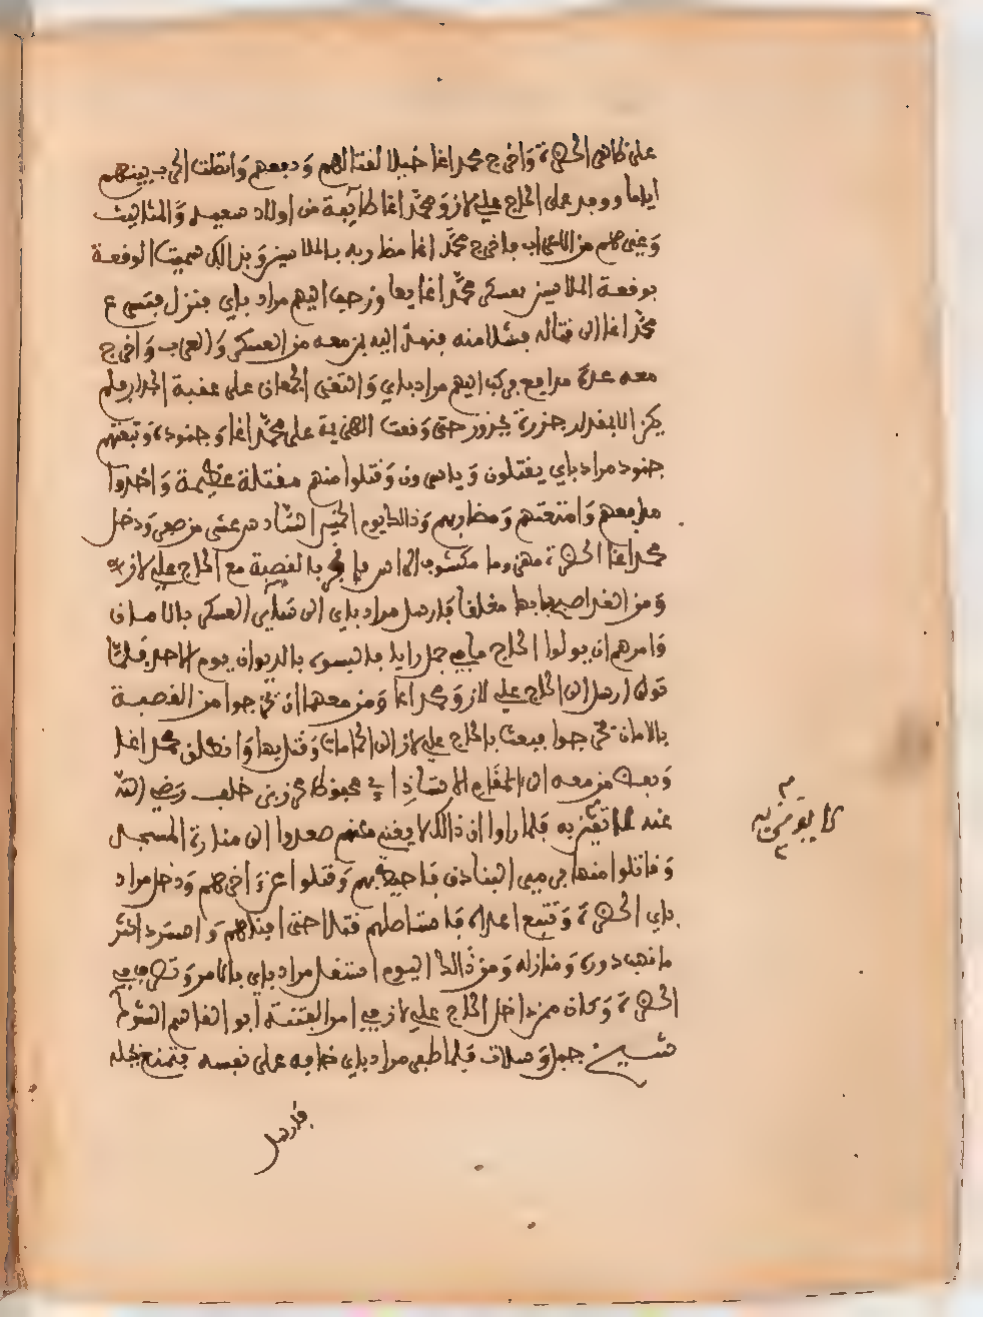 على ظاهر الحضرة وأخرج محمد اغا خيلا لقتالهم ودفعهم واتصلت الحرب بينهم
اياما ووفد على الحاج علي لاز ومحمد اغا طائفة من اولاد سعيد والمثاليث
وغيرهم من الاعراب فاخرج محمد اغا مضاربه بالملاسين وبذالك سميت الوقعة
بوقعة الملاسين بعسكر محمد اغا بها وزحف اليهم مراد باي فنزل
محمد اغا الى قتاله فشلا منه فنهد اليه بمن معه من العسكر والعرب واخرج
معه عدة مدافع فركب اليهم مراد باي والتقى الجمعان على عقبة الجزار فلم
يكن الا بقدر جزرة جزور حتى وقعت الهزيمة على محمد اغا وجنوده وتبعتهم
جنود مراد باي يقتلون وياسرون وقتلوا منهم مقتلة عظيمة واخذوا
مدافعهم وامتعتهم ومضاربهم وذالك يوم الخميس السادس عشر من صفر ودخل
محمد اغا الحضرة مهزوما مكسوف البال بالقصبة مع الحاج علي لاز
ومن الغد اصبح بابها مغلقا فارسل مراد باي الى العسكر بالامان
وامرهم ان يولوا الحاج مامي جمل دايا فالبسوه بالديوان يوم الاحد فلما
تولى ارسل الى الحاج علي لاز ومحمد اغا ومن معهما ان يخرجوا من القصبة
بالامان فخرجوا فبعث بالحاج علي لاز الى الحمامات وقتل بها وانطلق محمد اغا
وبعض من معه الى مقام الاستاذ ابي محفوظ محرز بن خلف رضي الله
عنه عائذين به فلما راوا ان ذالك لا يغني عنهم صعدوا الى منارة المسجد
وقاتلوا منها برمي البنادق فاحيط بهم وقتلوا عن اخرهم ودخل مراد
باي الحضرة وتتبع اعداءه فاستاصلهم قتلا حتى افناهم واسترد اكثر
ما نهب دوره ومنازله ومن ذالك اليوم استقل مراد باي بالامر وتصرف في
الحضرة وكان ممن داخل الحاج علي لاز في امر الفتنة ابو القاسم الشوك
شيخ جبل وسلات فلما ظفر مراد باي خافه على نفسه فتمنع بجبله
فارسل